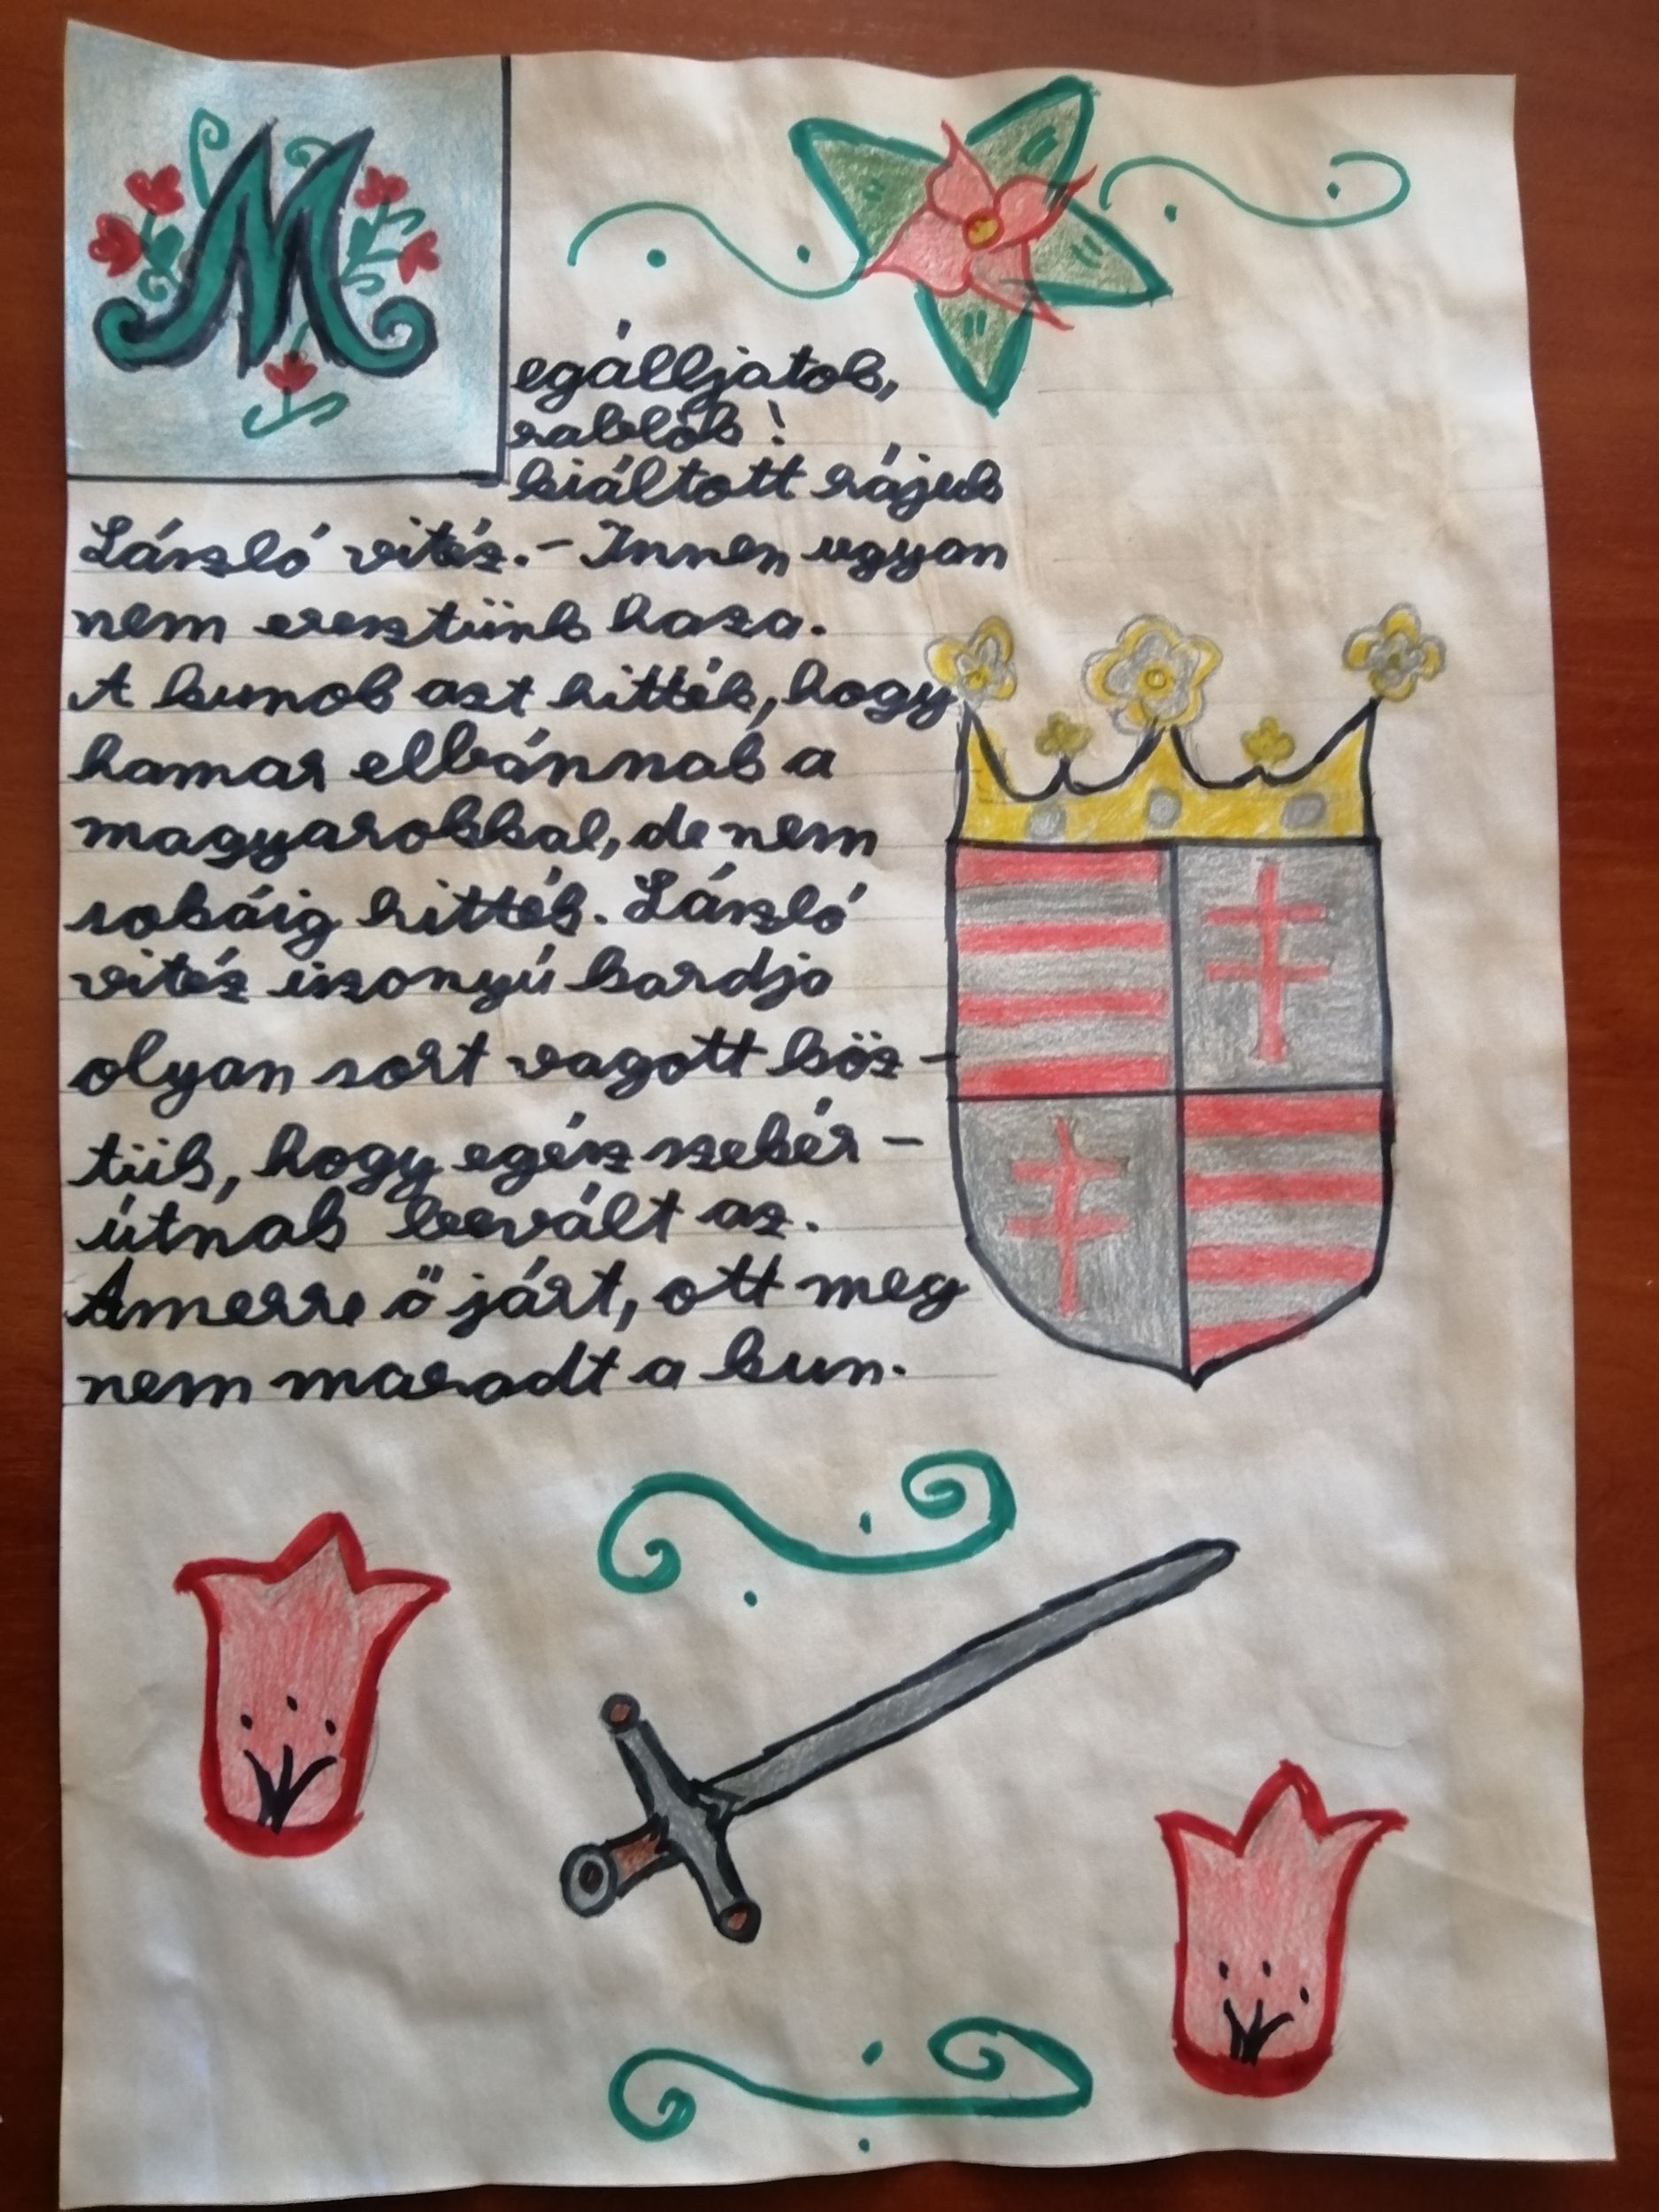 Megálljatok,
rablók!
- kiáltott rájuk
László vitéz. - Innen ugyan
nem eresztünk haza.
A kunok azt hitték, hogy
hamar elbánnak a
magyarokkal, de nem
sokáig hitték. László
vitéz iszonyú bardja
olyan sort vagott köz-
tük, hogy egész szekér-
útnak bevált az.
Amerre ő járt, ott meg
nem maradt a kun.